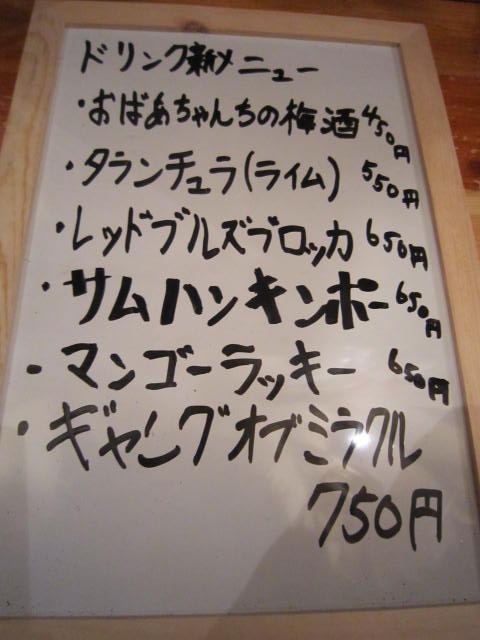 ドリンク新メニュー
・おばあちゃんちの梅酒 450円
・タランチュラ(ライム) 550円
・レッドブルズブロッカ 650円
・サムハンキンポー 650円
・マンゴーラッキー 650円
・ギャングオブミラクル
750円